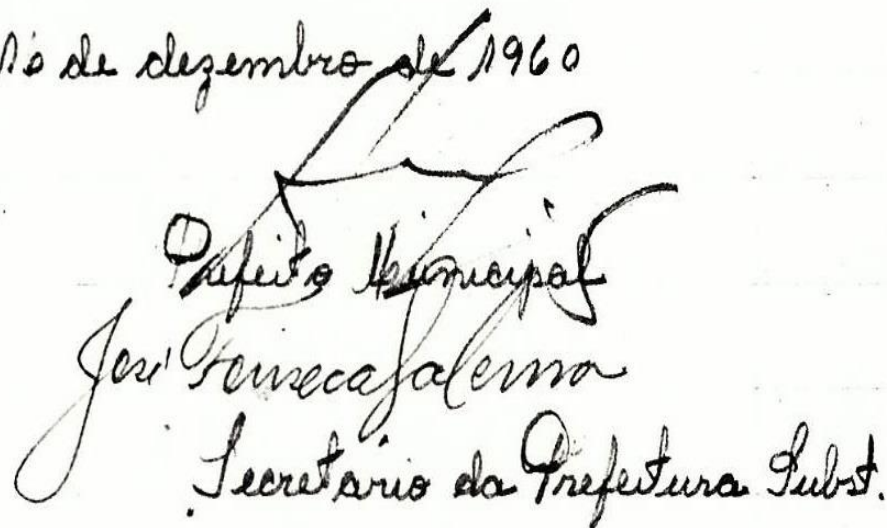 10 de dezembro de 1960
Prefeito Municipal
José Fonseca Salerno
Secretario da Prefeitura Subst.